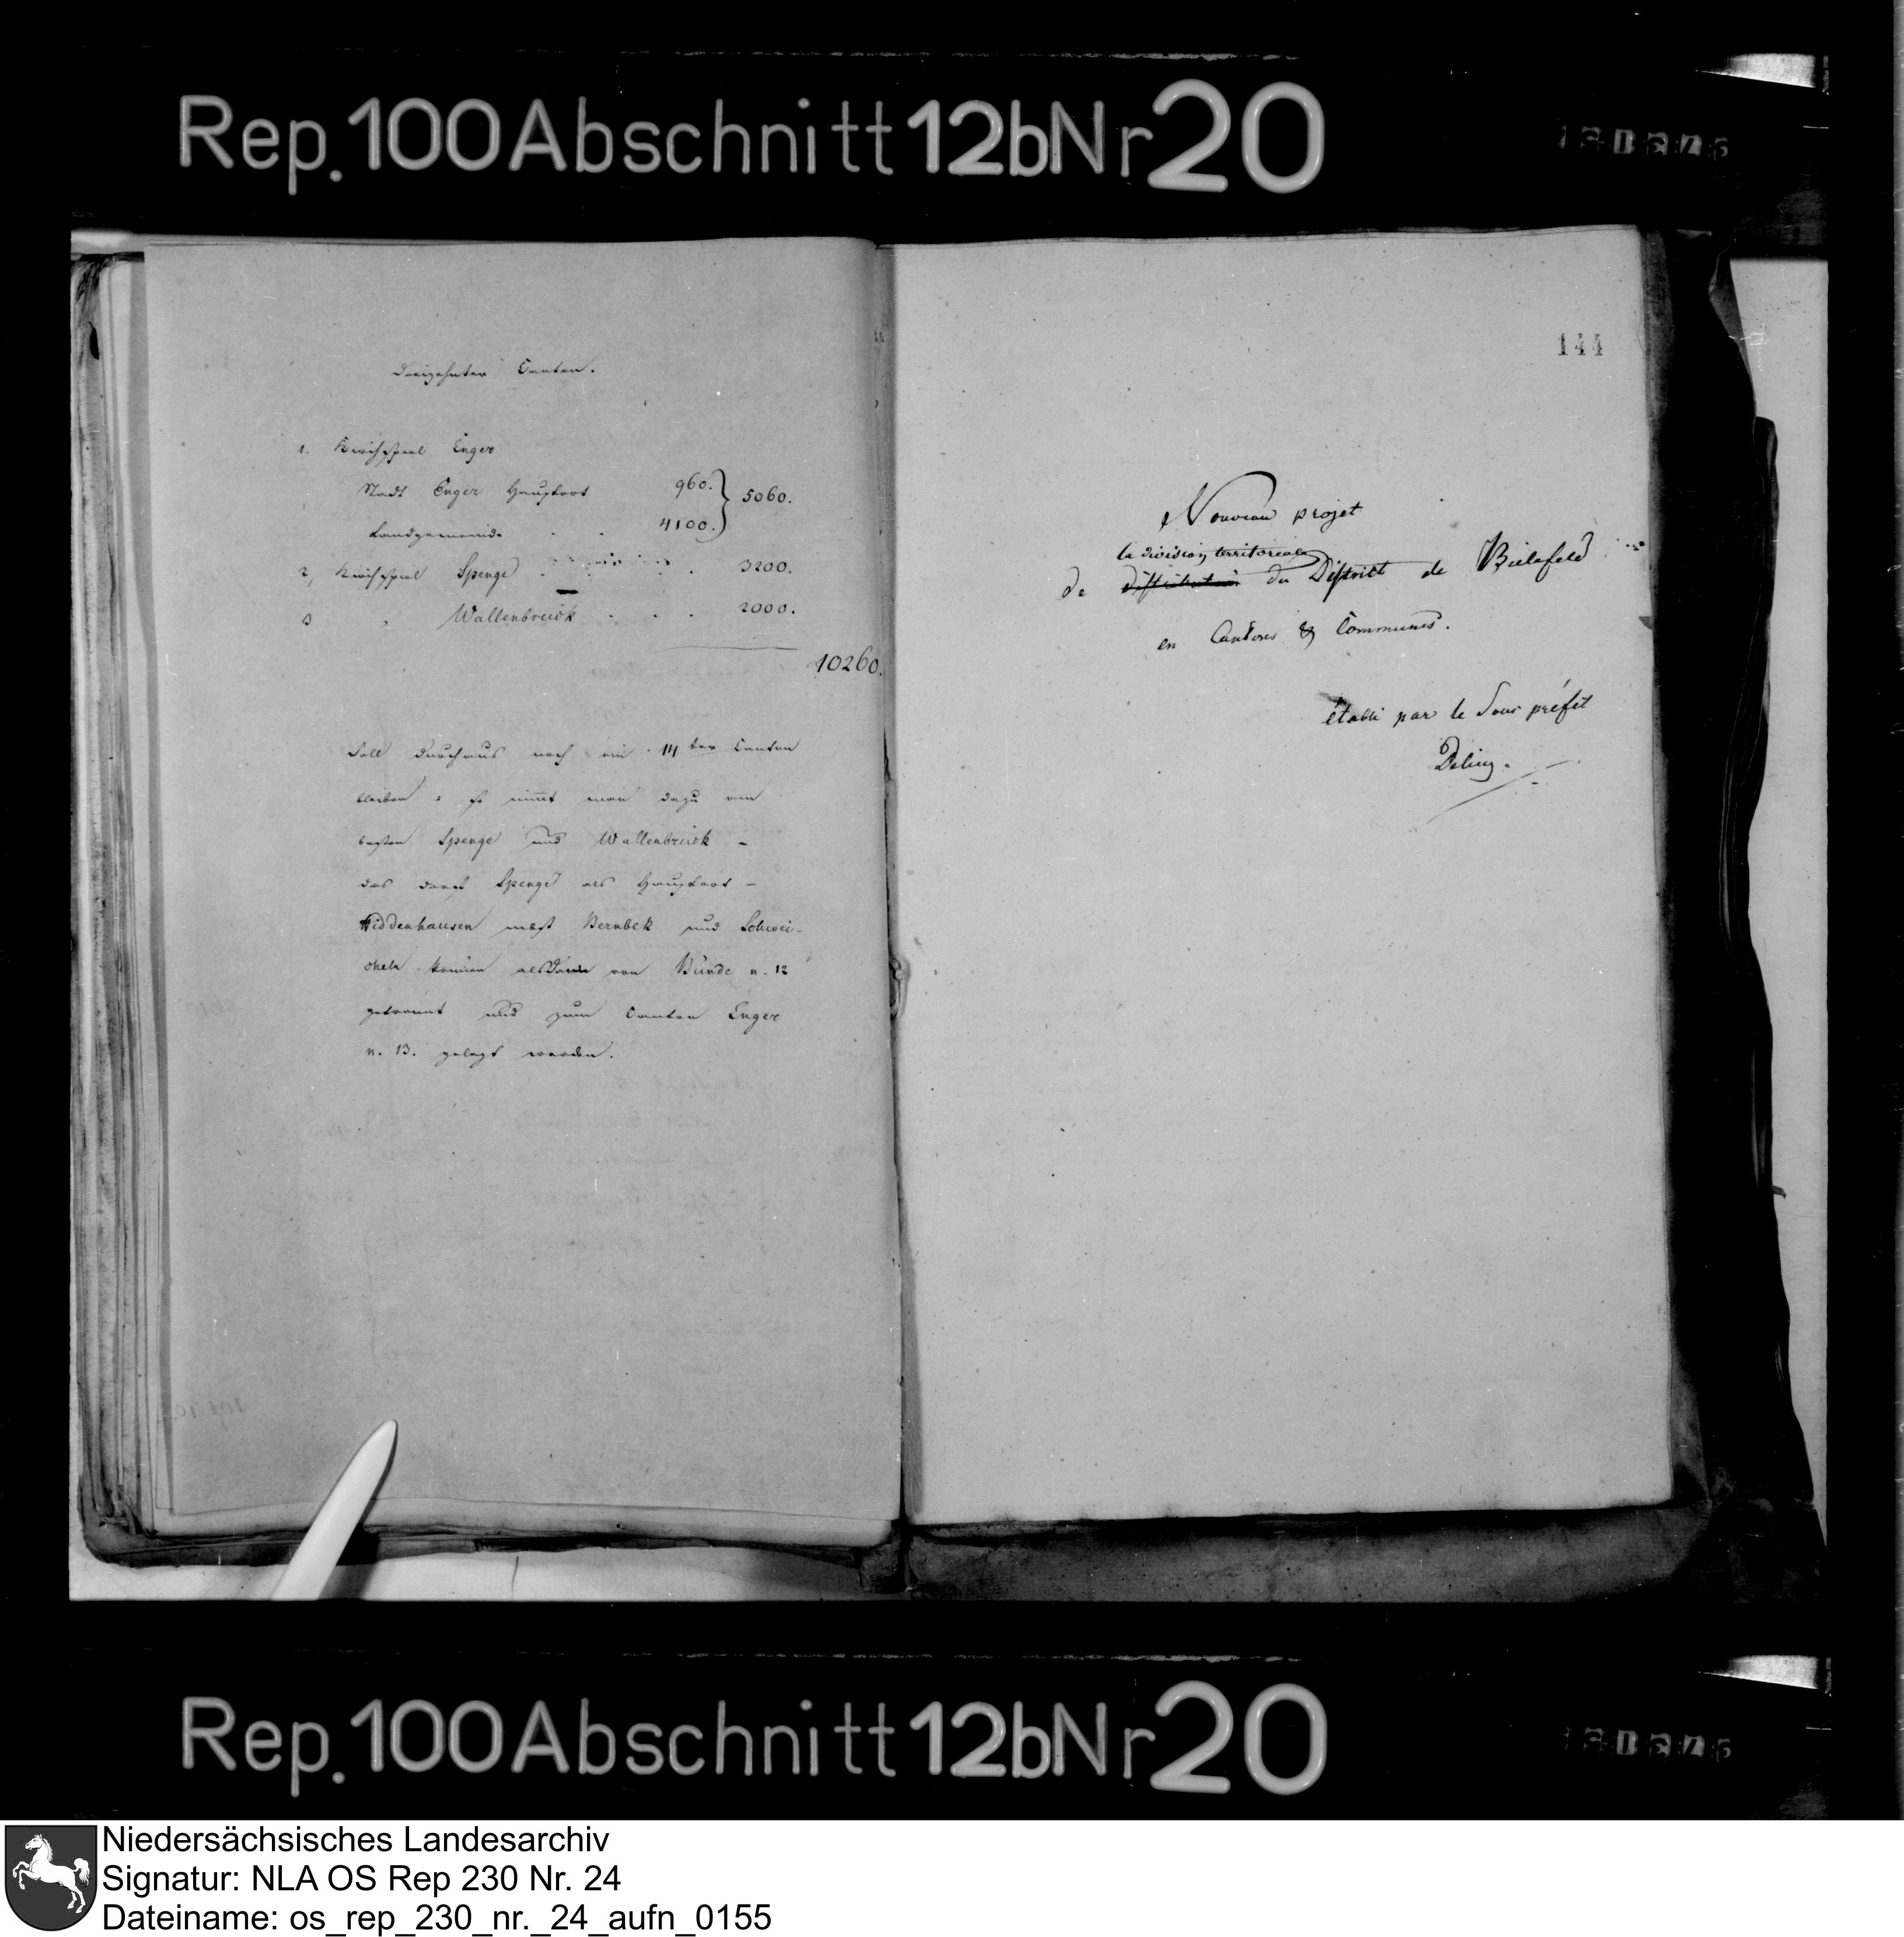 Rep. 100 Abschnitt 12b Nr 20
Dreizehnter Canton.
1. Kirchspiel Enger
Stadt Enger Hauptort 960. } 5060.
Landgemeinde . . 4100.
2, Kirchspiel Spenge . . 3200.
3 " Wallenbrück . . . 2000.
10260.
Soll durchaus noch ein 14ter Canton
bleiben: so nimt man dazu am
besten Spenge und Wallenbrück -
das dorf Spenge als Hauptort -
Hiddenhausen nebst Bernbek und Schwei-
cheln können alsdann von Bünde n. 12
getrennt und zum Canton Enger
n. 13. gelegt werden.
144
Nouveau projet
la division territoriale
de distribution du District de Bielefeld
en Cantons & Communes.
établi par le Sous préfet
Delius.
Rep. 100 Abschnitt 12b Nr 20
Niedersächsisches Landesarchiv
Signatur: NLA OS Rep 230 Nr. 24
Dateiname: os_rep_230_nr._24_aufn_0155